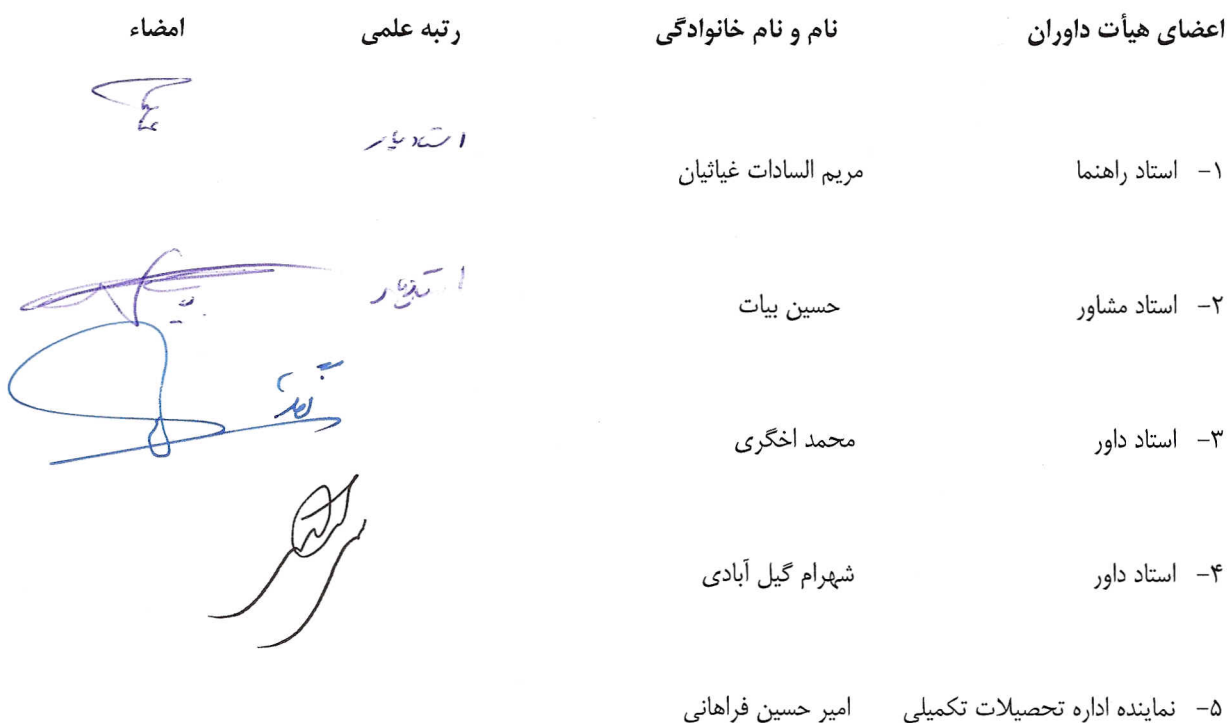 اعضای هیأت داوران نام و نام خانوادگی رتبه علمی امضاء
۱- استاد راهنما مریم السادات غیاثیان استادیار
۲- استاد مشاور حسین بیات استادیار
۳- استاد داور محمد اخگری
۴- استاد داور شهرام گیل آبادی
۵- نماینده اداره تحصیلات تکمیلی امیر حسین فراهانی